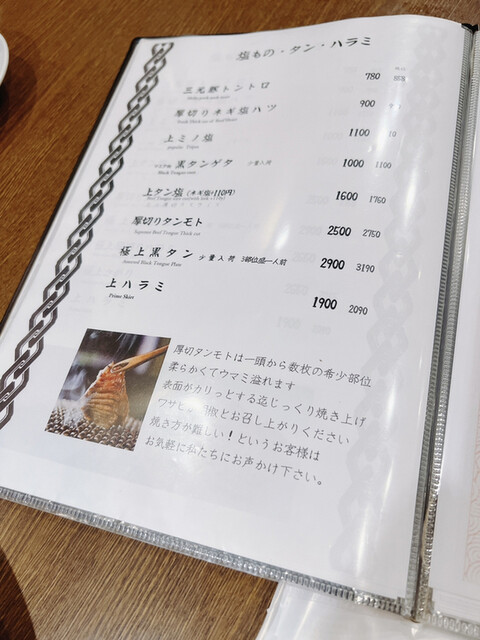 塩もの・タン・ハラミ
三元豚トントロ 780
厚切りネギ塩ハツ 900
上ミノ塩 1100
黒タンゲタ 少量入荷 1000 1100
Black Tongue root
上タン塩 (ネギ塩+110円) 1600 1760
厚切りタンモト 2500 2750
Supreme Beef Tongue Thick cut
極上黒タン 少量入荷 3部位盛一人前 2900 3190
Assorted Black Tongue Plate
上ハラミ 1900 2090
Prime Skirt
厚切タンモトは一頭から数枚の希少部位
柔らかくてウマミ溢れます
表面がカリっとする迄じっくり焼き上げ
ワサビ 胡椒とお召し上がりください
焼き方が難しい!というお客様は
お気軽に私たちにお声かけ下さい。